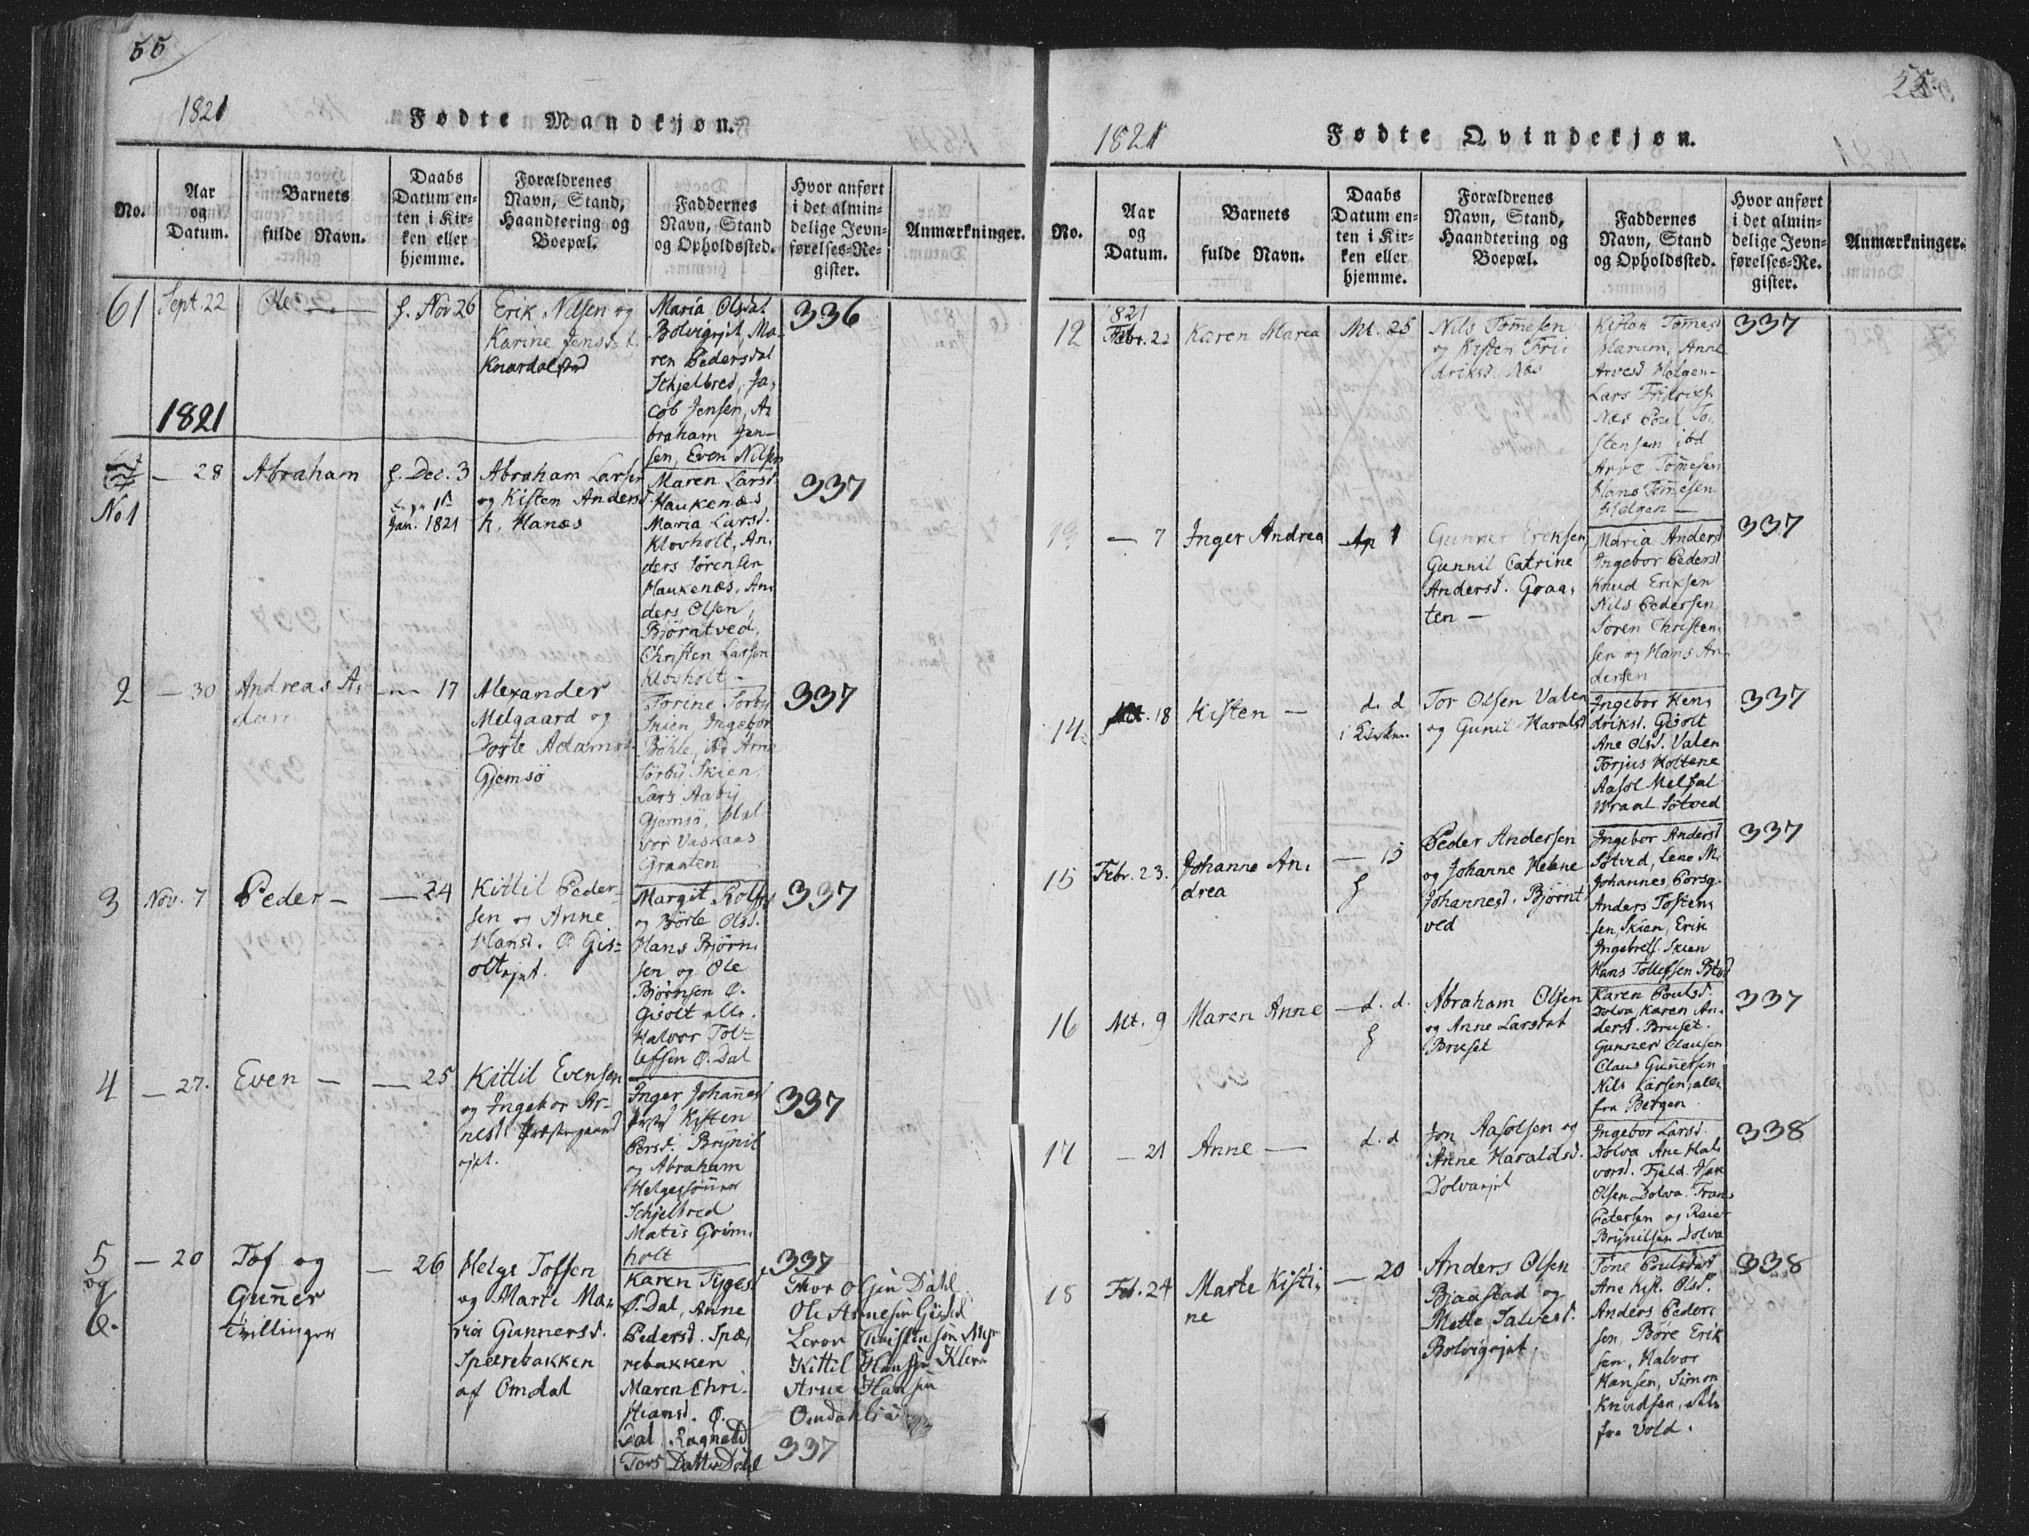 55
1821
Fødte Mandkjøn.
No.
Aar
og
Datum.
Barnets
fulde Navn.
Daabs
Datum en-
ten i Kir-
ken eller
hjemme.
Forældrenes
Navn, Stand,
Haandtering og
Boepæl.
Faddernes
Navn, Stand
og Opholdssted.
Hvor anført
i det almin-
delige Jevn-
førelses-Re-
gister.
Anmærkninger.
61
Sept 22
Ole
Nov 26
Erik Nilsen og
Karine Jensdat.
Maria Olsdat
Bolvigejt, Ma,
ren Pedersdat
Schjelbred, Ja,
cob Jensen, A,
braham Jen-
sen, Even Nilsen
336
1821
No 1
— 28
Abraham
Dec. 3
Jan. 1821
Abraham Larsen
og Kisten Andersd.
h. Hanæs
Maren Larsd.
Haukenæs
Maria Larsd.
Klovholt, An,
ders Sørensen
Haukenæs, An,
ders Olsen,
Bjørntved,
Christen Larsen
Klovholt —
337
2
— 30
Andreas A,
dam
17
Alexander
Melgaard og
Dorte Adams
Gjemsö
Torine Sørby
Skien, Ingebor
Bøhle, ibd Arne
Sørby Skien,
Lars Aaby
Gjemsö, Hal
vor Vaskaas
Graaten
337
3
Nov. 7
Peder —
— 24
Kittil Peder-
sen og Anne
Hansd. Ø Gis-
oltejet.
Margit Rolfsd
og Børle Olsd.
Hans Bjørn,
sen og Ole
Bjørnsen Ø.
Gisolt alle.
Halvor Tol-
lefsen Ø. Dal
337
4
— 27.
Even —
— 25
Kittil Evensen
og Ingebor Ar-
nesd.
ejet.
Inger Johannes
Kisten
Persd. Brynil
og Abraham
Schjelbred
Matis Grim,
holt
337
5
og
6.
— 20
Tof og
Gunner
Tvillinger
— 26
Helge Tofsen
og Marte Ma,
ria Gunnersd.
Speerebakken
af Omdal
Karen Tygesd
Ø. Dal, Anne
Pedersd. Spæ,
rebakken
Maren Chri-
stiansd. Ø.
Dal, Ragnild
Tors Datter Dahl
337
Thor Olsen Dahl
Ole Arnesen Gisholt
Kittil Hansen
Arne Hansen
Omdahl
337
55.
1821
Fødte Qvindekjøn.
No.
Aar
og
Datum.
Barnets
fulde Navn.
Daabs
Datum en-
ten i Kir-
ken eller
hjemme.
Forældrenes
Navn, Stand,
Haandtering og
Boepæl.
Faddernes
Navn, Stand
og Opholdssted.
Hvor anført
i det almin-
delige Jevn-
førelses-Re-
gister.
Anmærkninger.
12
1821
Febr. 22
Karen Maria
Mt. 25
Nils Tomesen
og Kisten Fri-
driksd. Næs
Kistan Tomesd
Marum, Anne
Arvesd Helgen-
Lars Fridriks
Næs Poul To,
stensen ibd
Arve Tomesen
Hans Tomesen
Helgen —
337
13
— 7
Inger Andrea
Ap 1
Gunner Eriksen
Gunnil Catrine
Andersd. Graa,
ten —
Maria Andersd
Ingebor Pedersd
Knud Eriksen
Nils Pedersen
Soren Christen,
sen og Hans An
dersen
337
14
Mt. 18
Kisten —
d. d
i Kirken
Tor Olsen Valen
og Gunil Haralsd
Ingebor Hen,
driksd. Gisolt
Ane Olsd. Valen
Torjus Holtene
Aasol Melfal
Wraal Søtved
337
15
Febr. 23.
Johanne An,
drea
— 15
Peder Andersen
og Johanne Helene
Johannesd. Bjørnt
ved
Ingebor Andersd
Søtved, Lene M.
Johannes, Porsg.
Anders Tosten,
sen, Skien, Erik
Ingebretss. Skien
Hans Tollefsen
337
16
Mt. 9
Maren Anne
— d. d.
Abraham Olsen
og Anne Larsdat
Bruset
Karen Poulsd.
Dolva, Karen An,
dersd. Bruset.
Gunner Clausen
Claus Gunnersen
Nils Larsen, alle
fra Bergen.
337
17
— 21
Anne —
d. d
Jon Aasolsen og
Anne Haraldsd.
Dolvaejet
Ingebor Larsd.
Dolva Ane Hal
vorsd. Fjeld.
Olsen Dolva. Frans
Pedersen og
Brynilsen Dolva
338
18
Feb. 24
Marte Kisti,
ne
— 20
Anders Olsen
Bjaastad og
Mette Salvesd.
Bolvigejet.
Tone Poulsdat
Ane Kist. Olsd.
Anders Peder,
sen, Børe Erik
sen, Halvor
Hansen, Simon
Knudsen, alle
fra Vold.
338